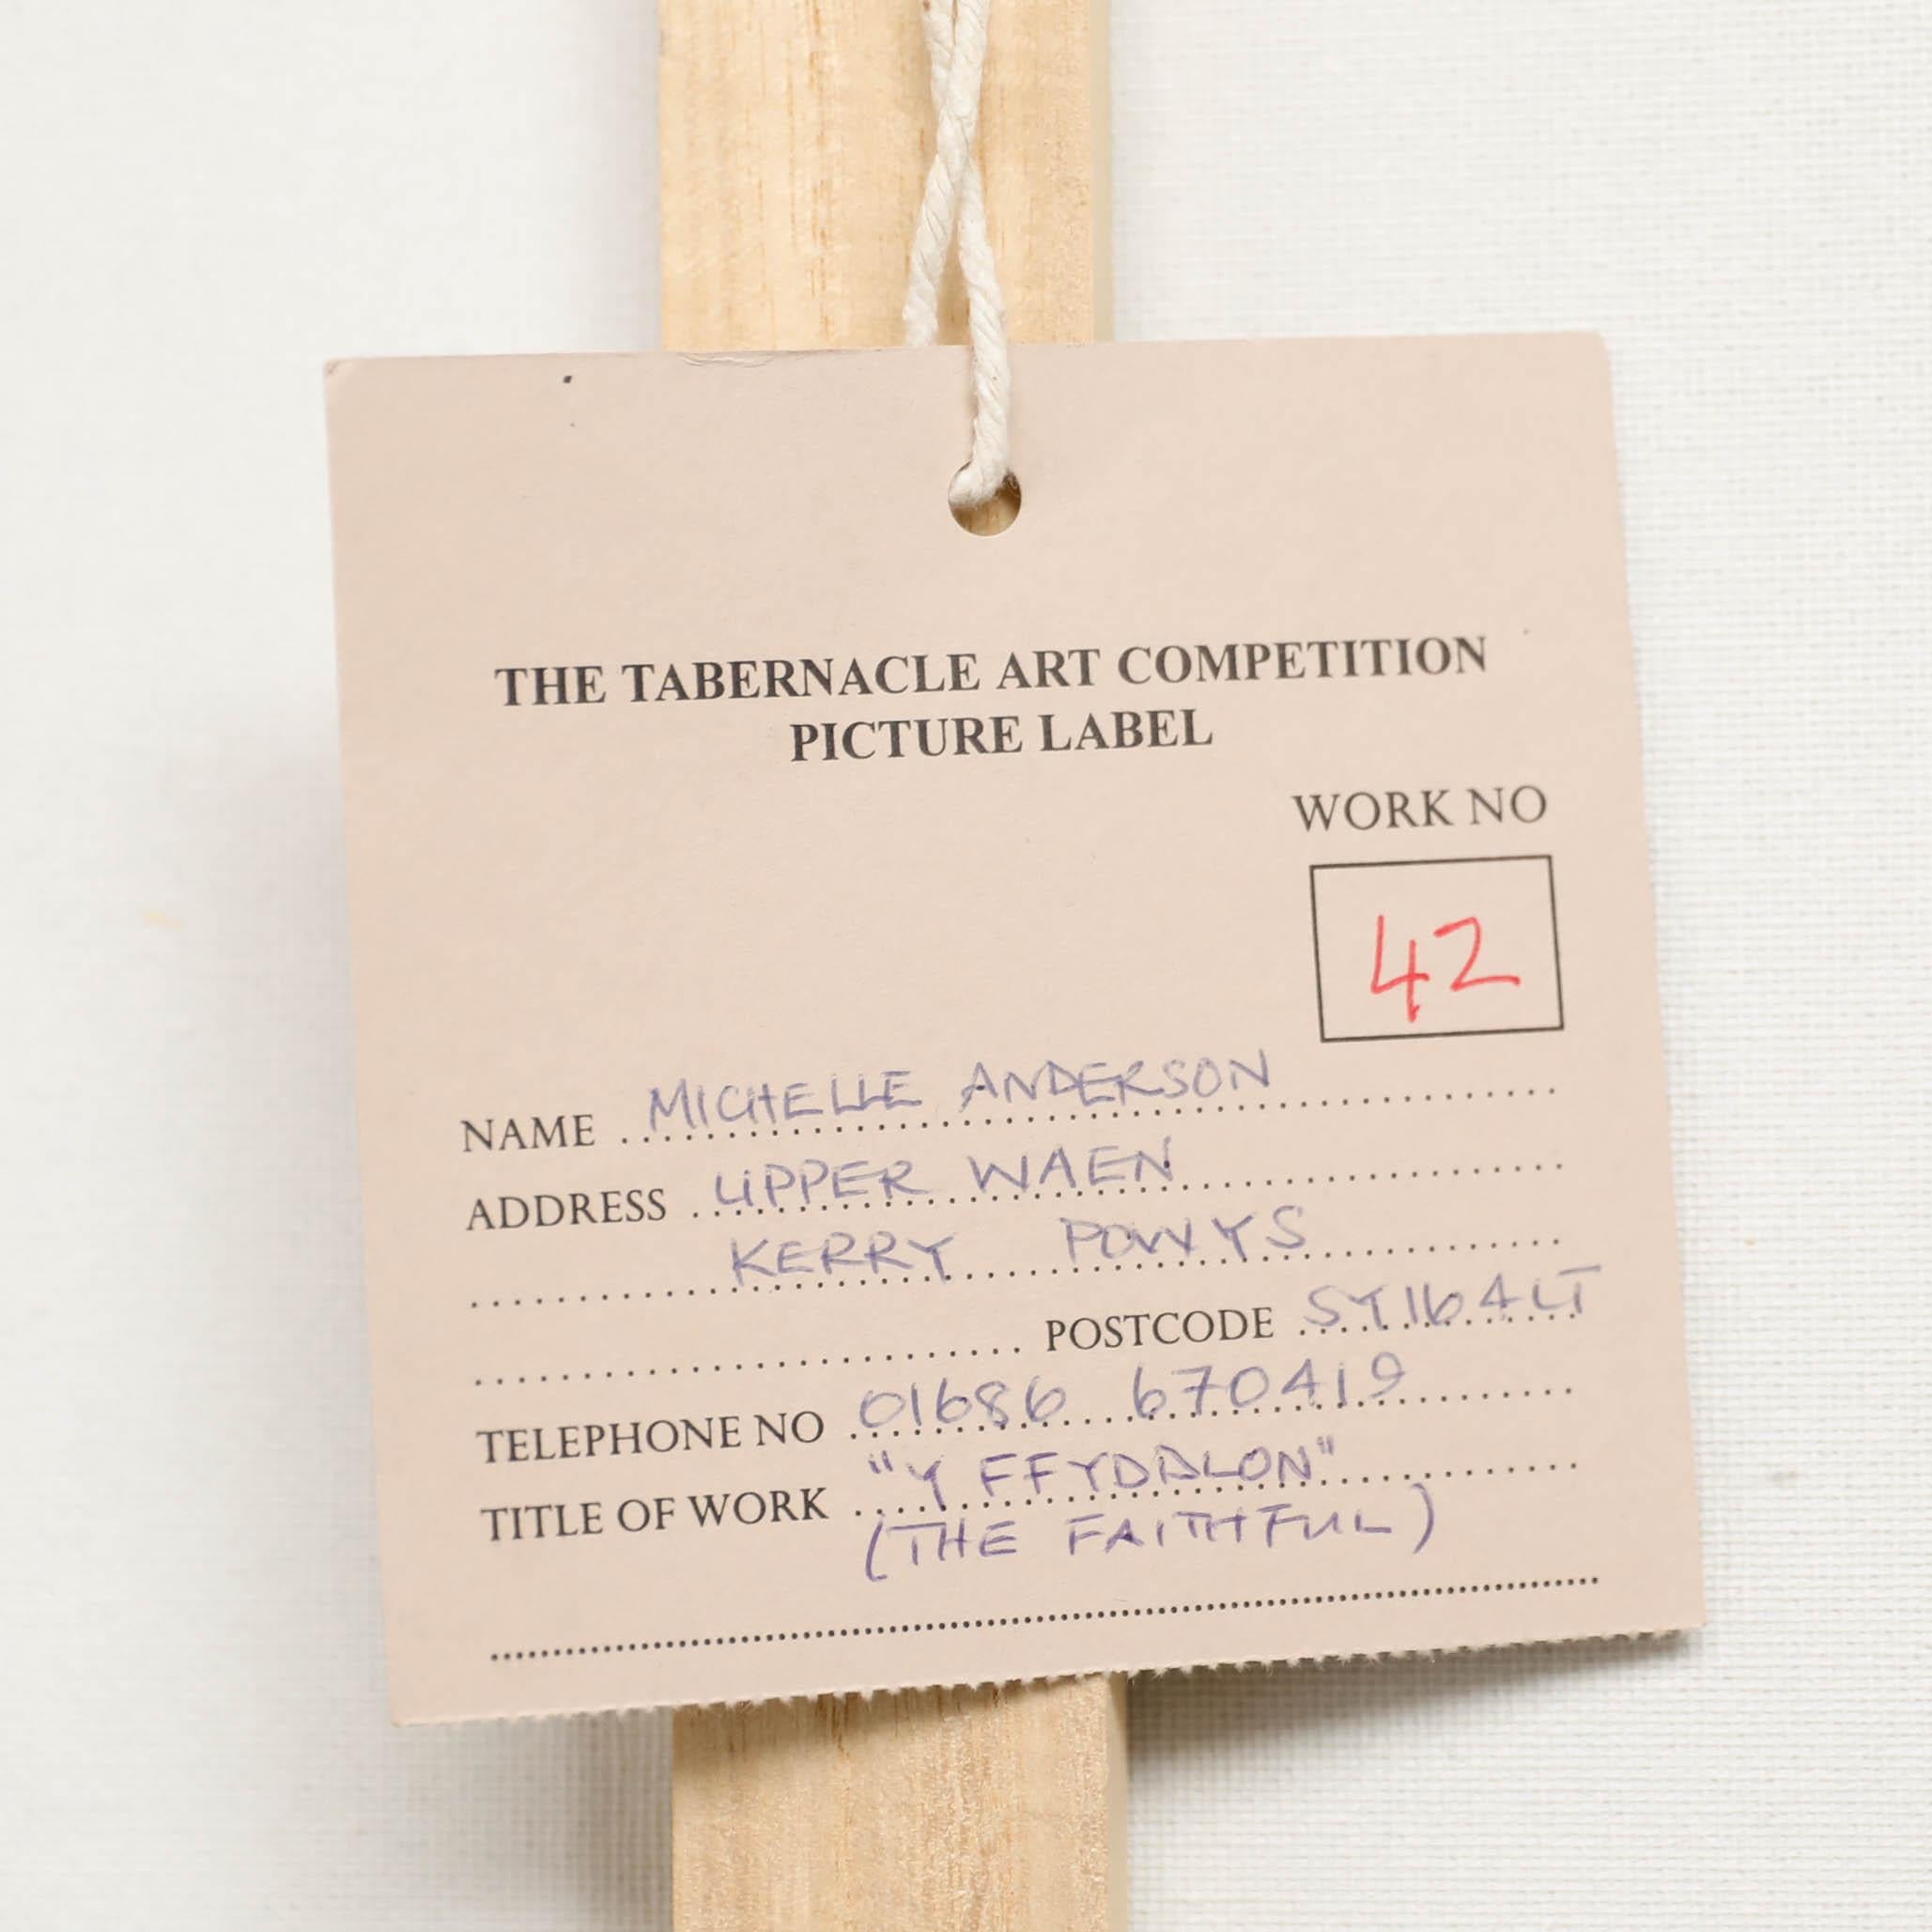 THE TABERNACLE ART COMPETITION
PICTURE LABEL
WORK NO
42
NAME MICHELLE ANDERSON
ADDRESS UPPER WAEN
KERRY POWYS
POSTCODE SY16 4LT
TELEPHONE NO 01686 670419
TITLE OF WORK "Y FFYDDLON"
(THE FAITHFUL)